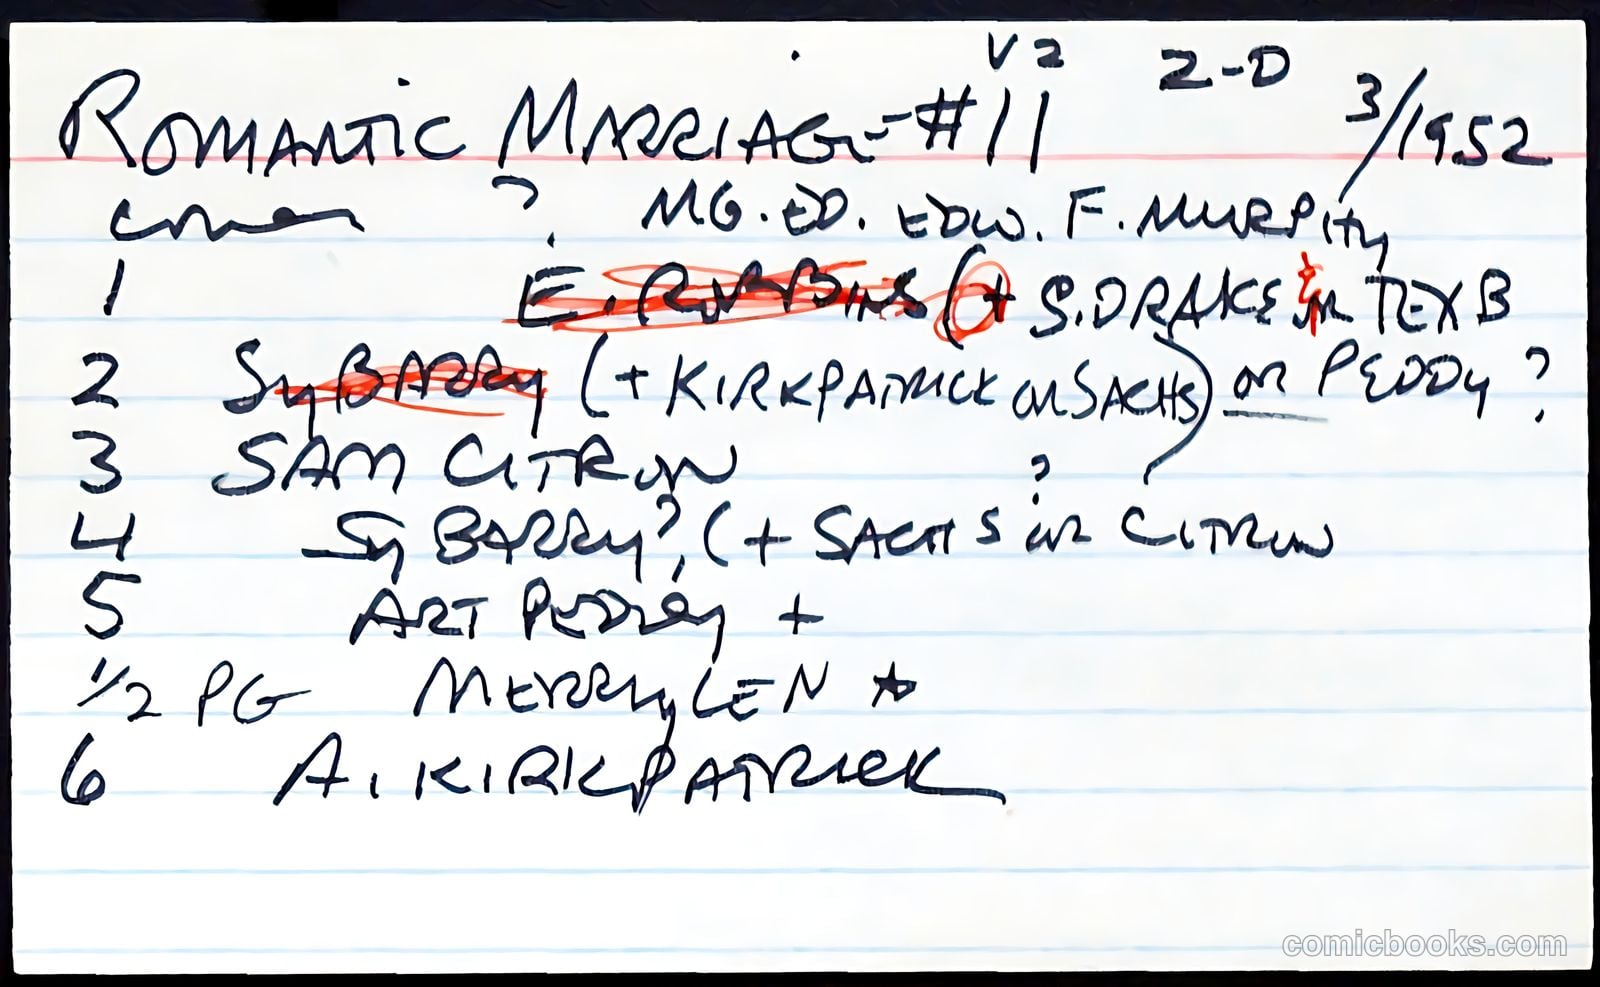 V2 Z-D
ROMANTIC MARRIAGE #11 3/1952
cover ? MG. ED. EDW. F. MURPHY
1 E. ROBBINS (+ S. DRAKE & TEX B
2 Sy BARRY (+ KIRKPATRICK OR SACHS) OR PEDDY ?
3 SAM CITRON
4 Sy BARRY?, (+ SACHS ? OR CITRON
5 ART PEDDY +
1/2 PG MERRYLEN
6 A. KIRKPATRICK
comicbooks.com